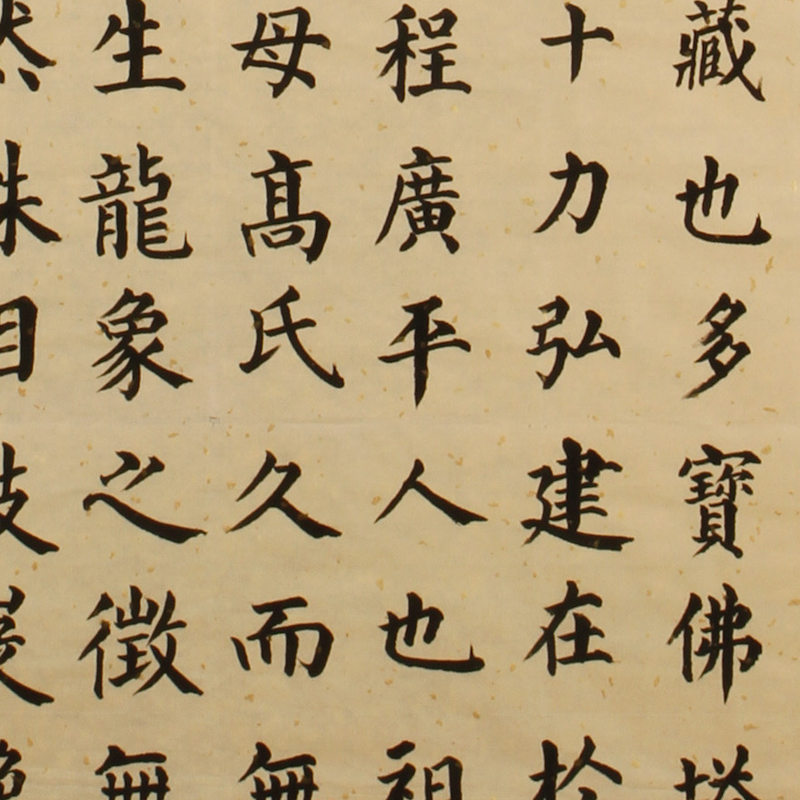 藏也多寶佛塔
十力弘建在於
程廣平人也祖
母高氏久而無
生龍象之徵無
然殊目岐嶷絕